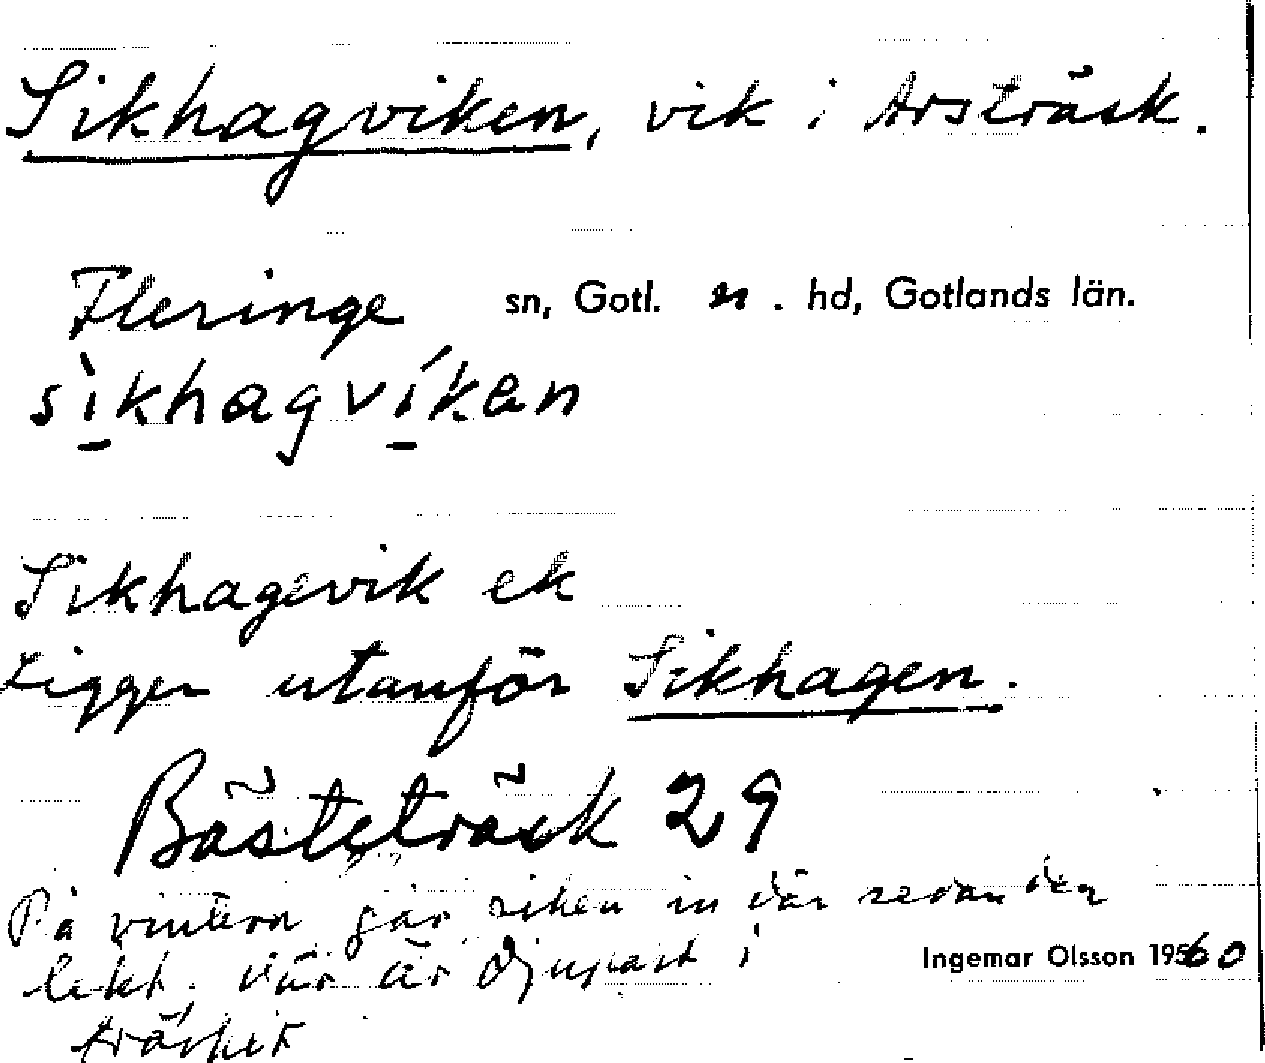 Sikhagviken, vik i Arsträsk.
Fleringe sn, Gotl. n. hd, Gotlands län.
sìkhagvíkan
Sikhagevik ek
Ligger utanför Sikhagen.
Bästeträsk 29
På vintern går siken in där sedan den
lekt. där är djupast i
träsket
Ingemar Olsson 1960